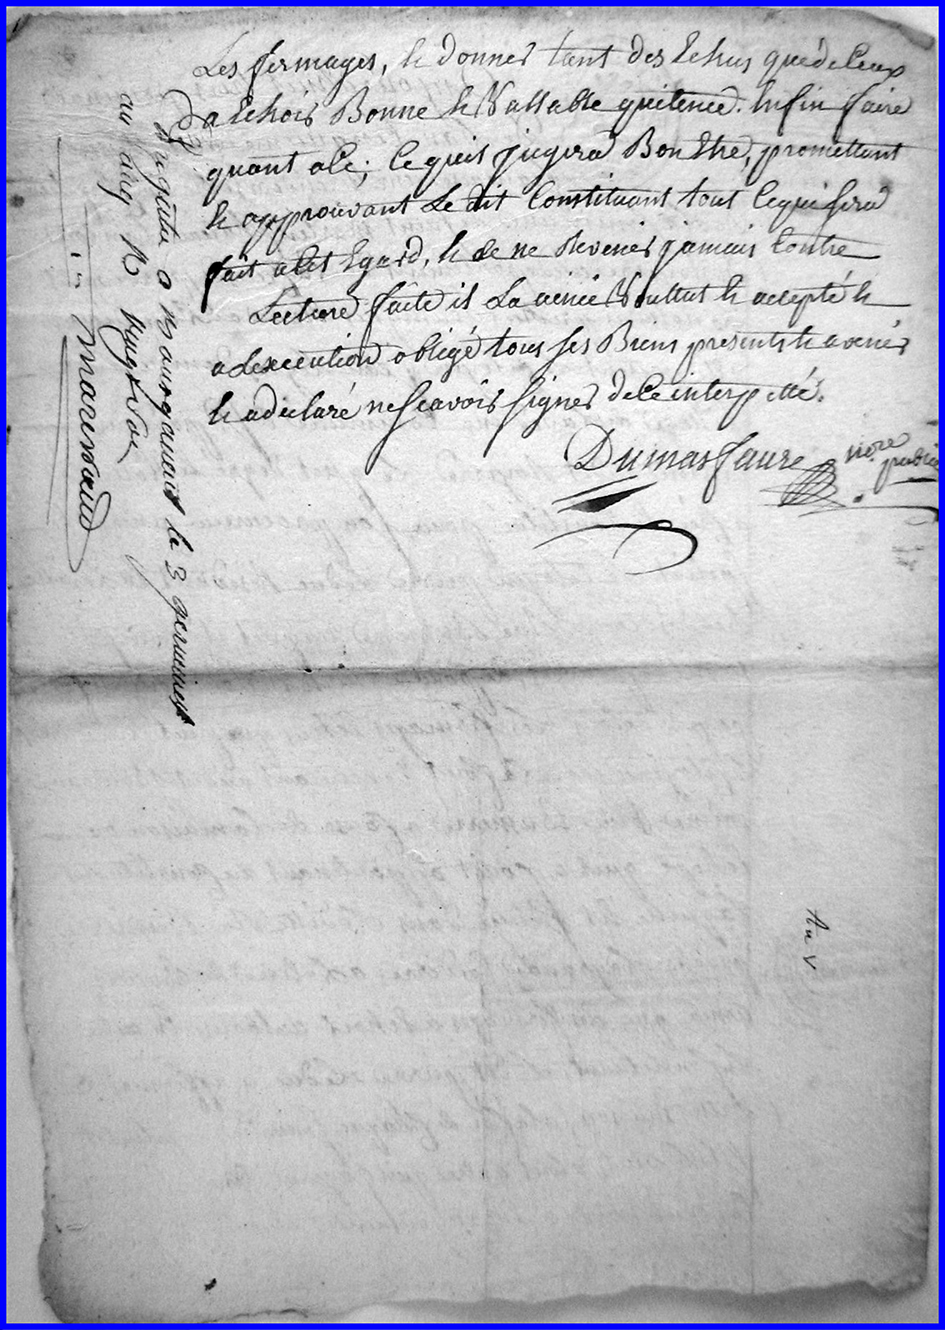 Les fermages, et donner tant des Echus que de Ceux
a Echoir Bonne et Vallable quitence. Enfin faire
quant a Ce; Ce quil jugera Bon Etre, promettant
et approuvant Le dit Constituant tout Ce qui sera
fait a Cet Egard, et de ne Revenir jamais Contre
Lecture faite il La ainsi Voullut et accepté et
a Lexecution obligé tous ses Biens presents et avenir
et a declaré ne scavoir signer de Ce interpellé.
Dumas faure nore public
Enregistré a le 3 germinal
au
marivaud
An V